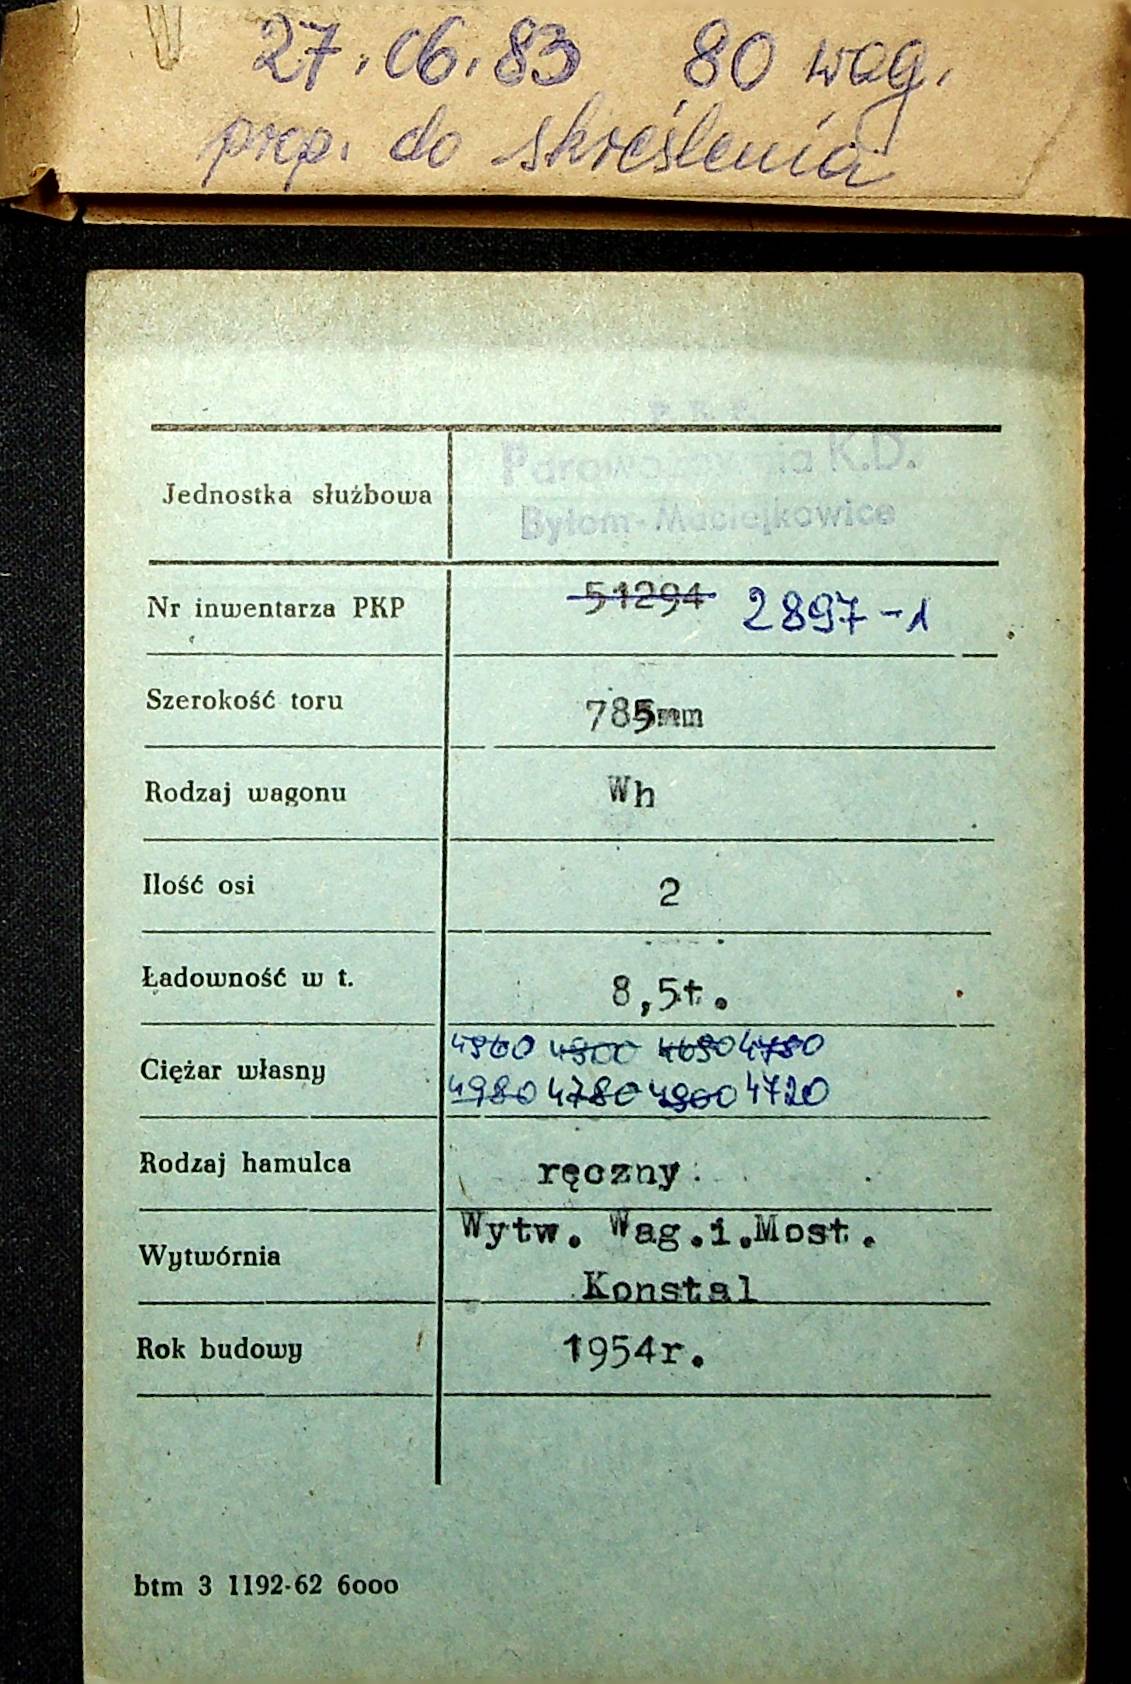 27.06.83 80 wag.
prop. do skreślenia
P. K. P.
Parowozownia K.D.
Bytom-Maciejkowice
Jednostka służbowa
Nr inwentarza PKP 51294 2897-1
Szerokość toru 785mm
Rodzaj wagonu Wh
Ilość osi 2
Ładowność w t. 8,5t.
4900 4690 4750
Ciężar własny
4980 4780 4900 4720
Rodzaj hamulca ręczny.
Wytw. Wag.i.Most.
Wytwórnia
Konstal
Rok budowy 1954r.
btm 3 1192-62 6000